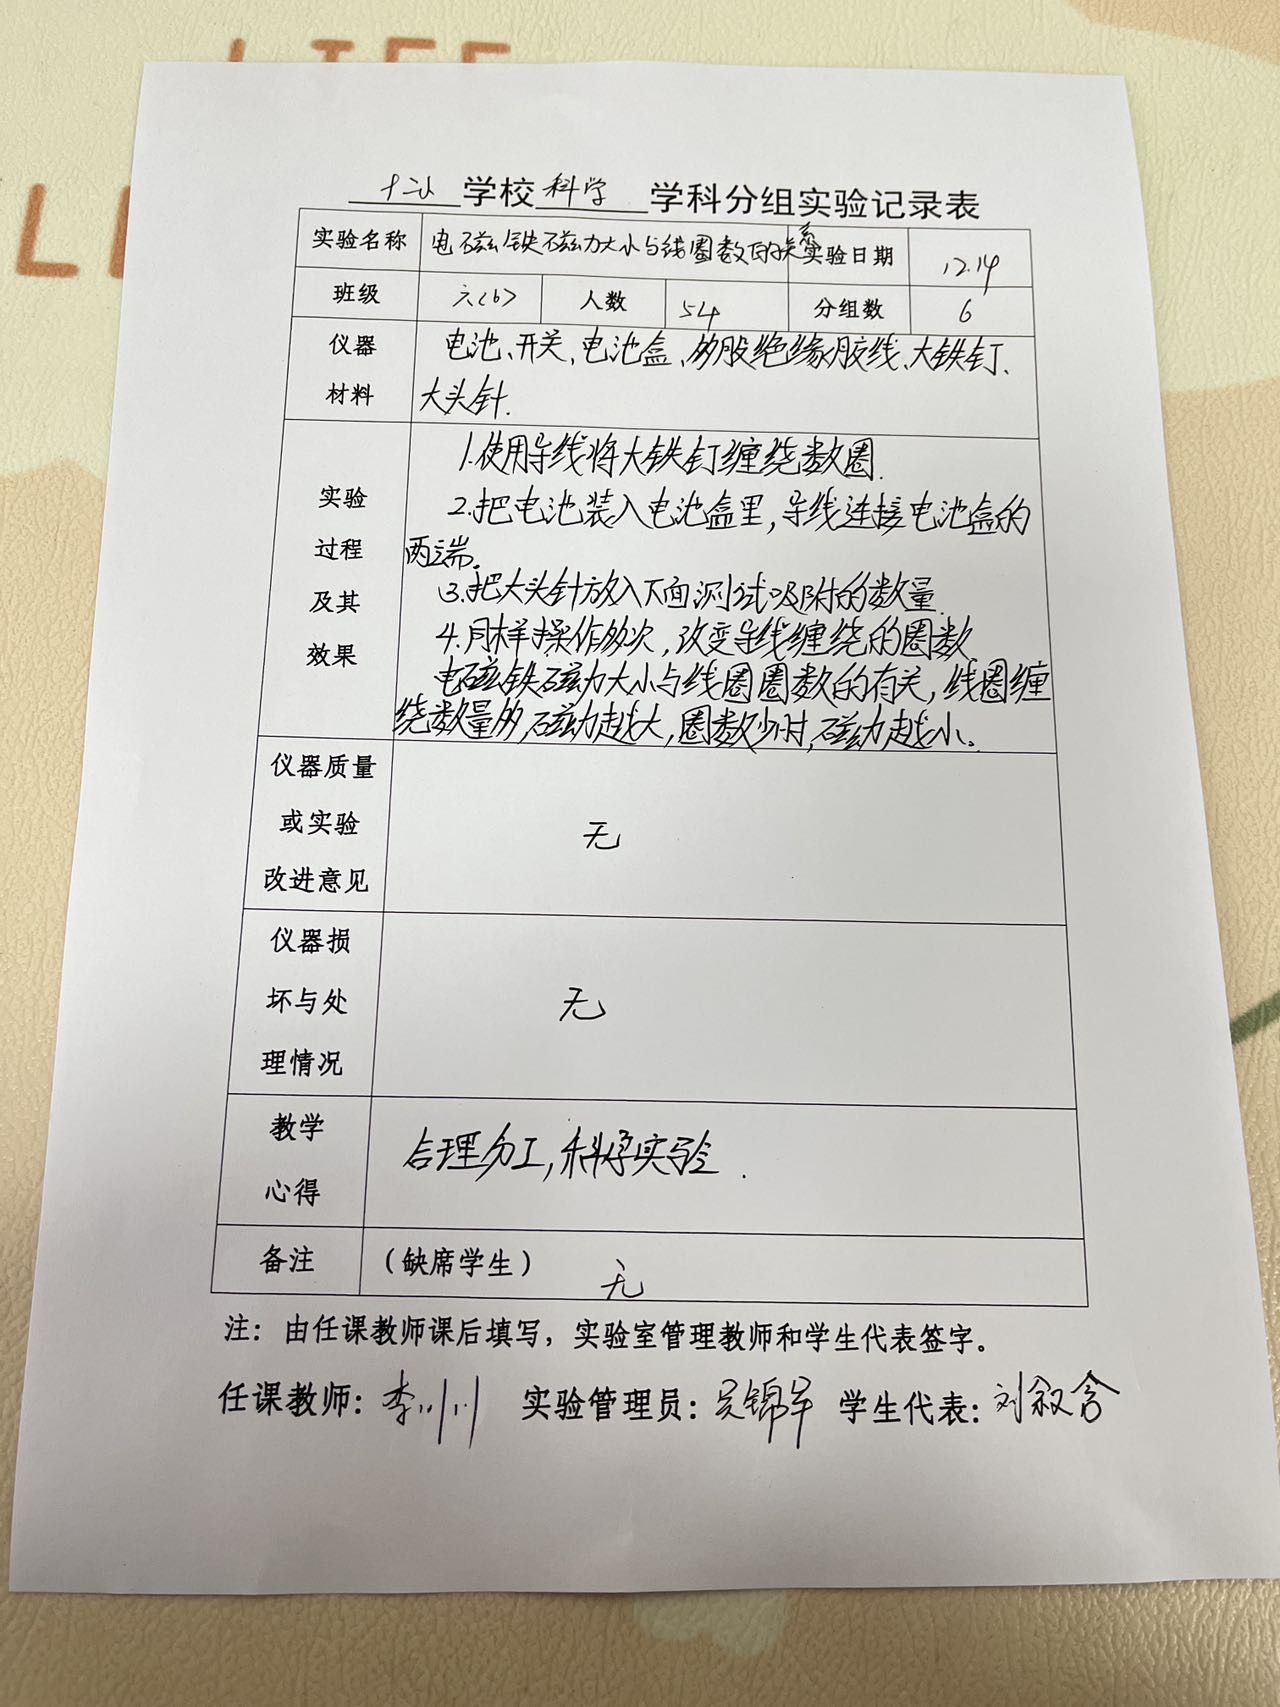 LIFE
十二小学校科学学科分组实验记录表
实验名称 电磁铁磁力大小与线圈数的关系 实验日期 12.14
班级 六<6> 人数 54 分组数 6
仪器材料 电池、开关、电池盒、多股绝缘胶线、大铁钉、
大头针.
实验过程及其效果 1.使用导线将大铁钉缠绕数圈.
2.把电池装入电池盒里,导线连接电池盒的
两端。
3.把大头针放入下面测试吸附的数量.
4.同样操作多次,改变导线缠绕的圈数
电磁铁磁力大小与线圈圈数的有关,线圈缠
绕数量多,磁力越大,圈数少时,磁力越小。
仪器质量或实验改进意见 无
仪器损坏与处理情况 无
教学心得 合理分工,科学实验.
备注 (缺席学生) 无
注：由任课教师课后填写，实验室管理教师和学生代表签字。
任课教师：李川川 实验管理员：吴锦华 学生代表：刘叙含